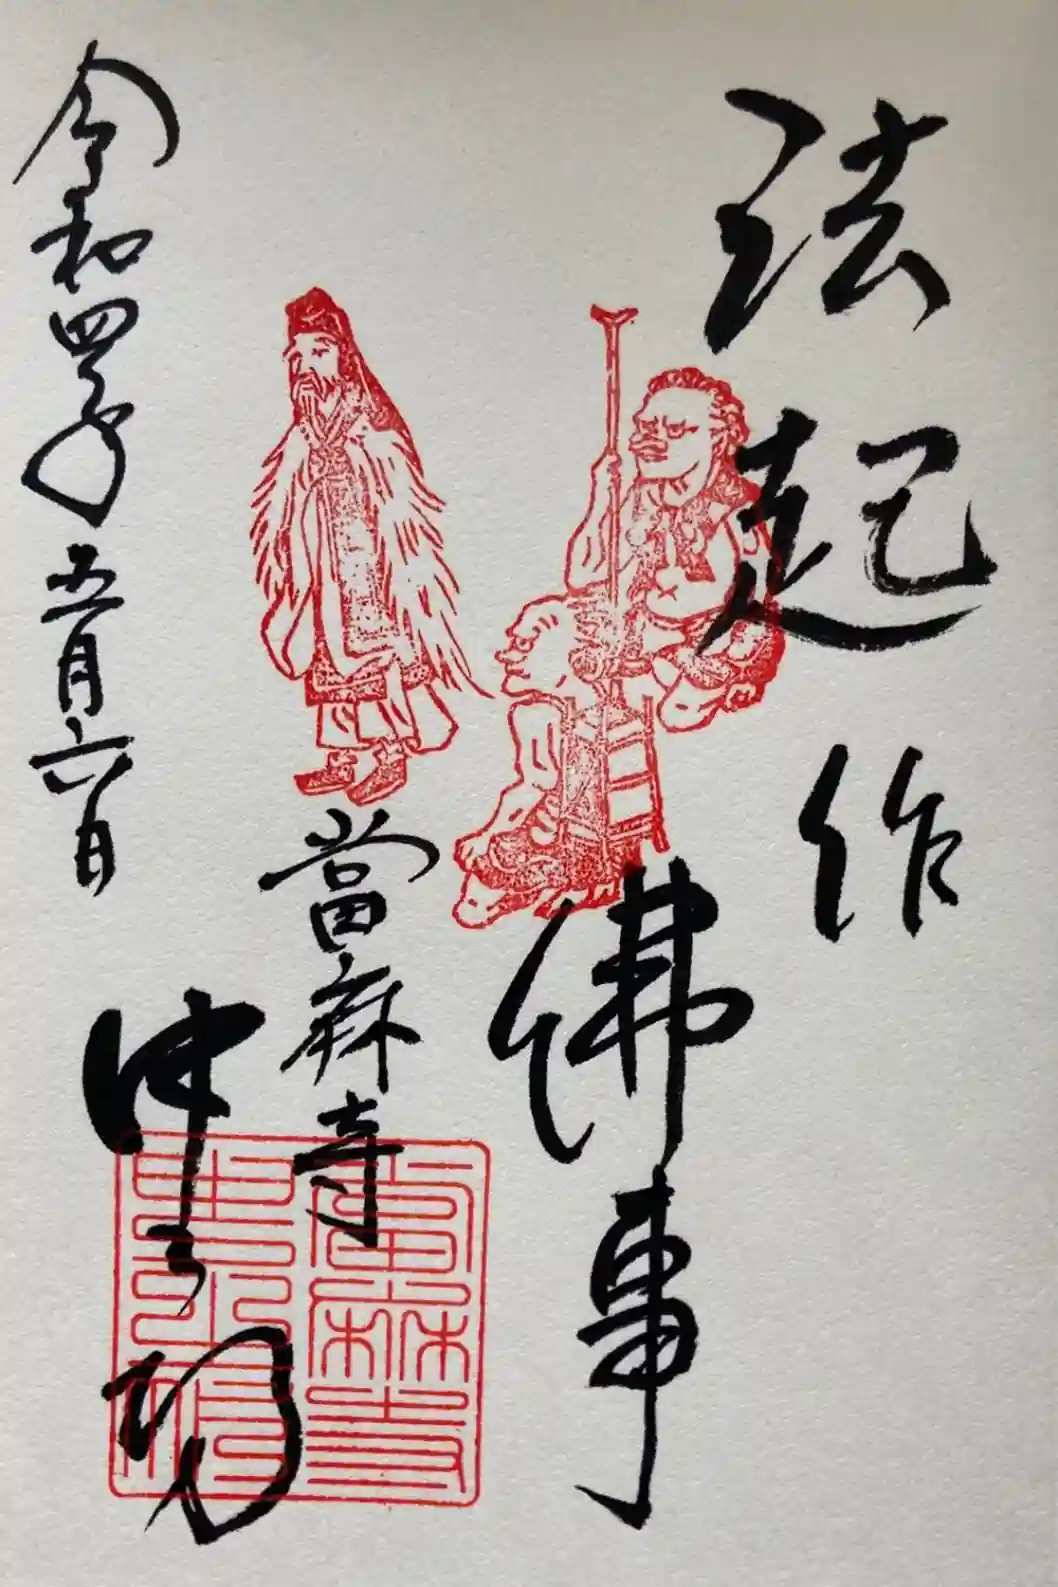 法起作
佛事
當麻寺
中之坊
令和四年五月六日
當麻寺